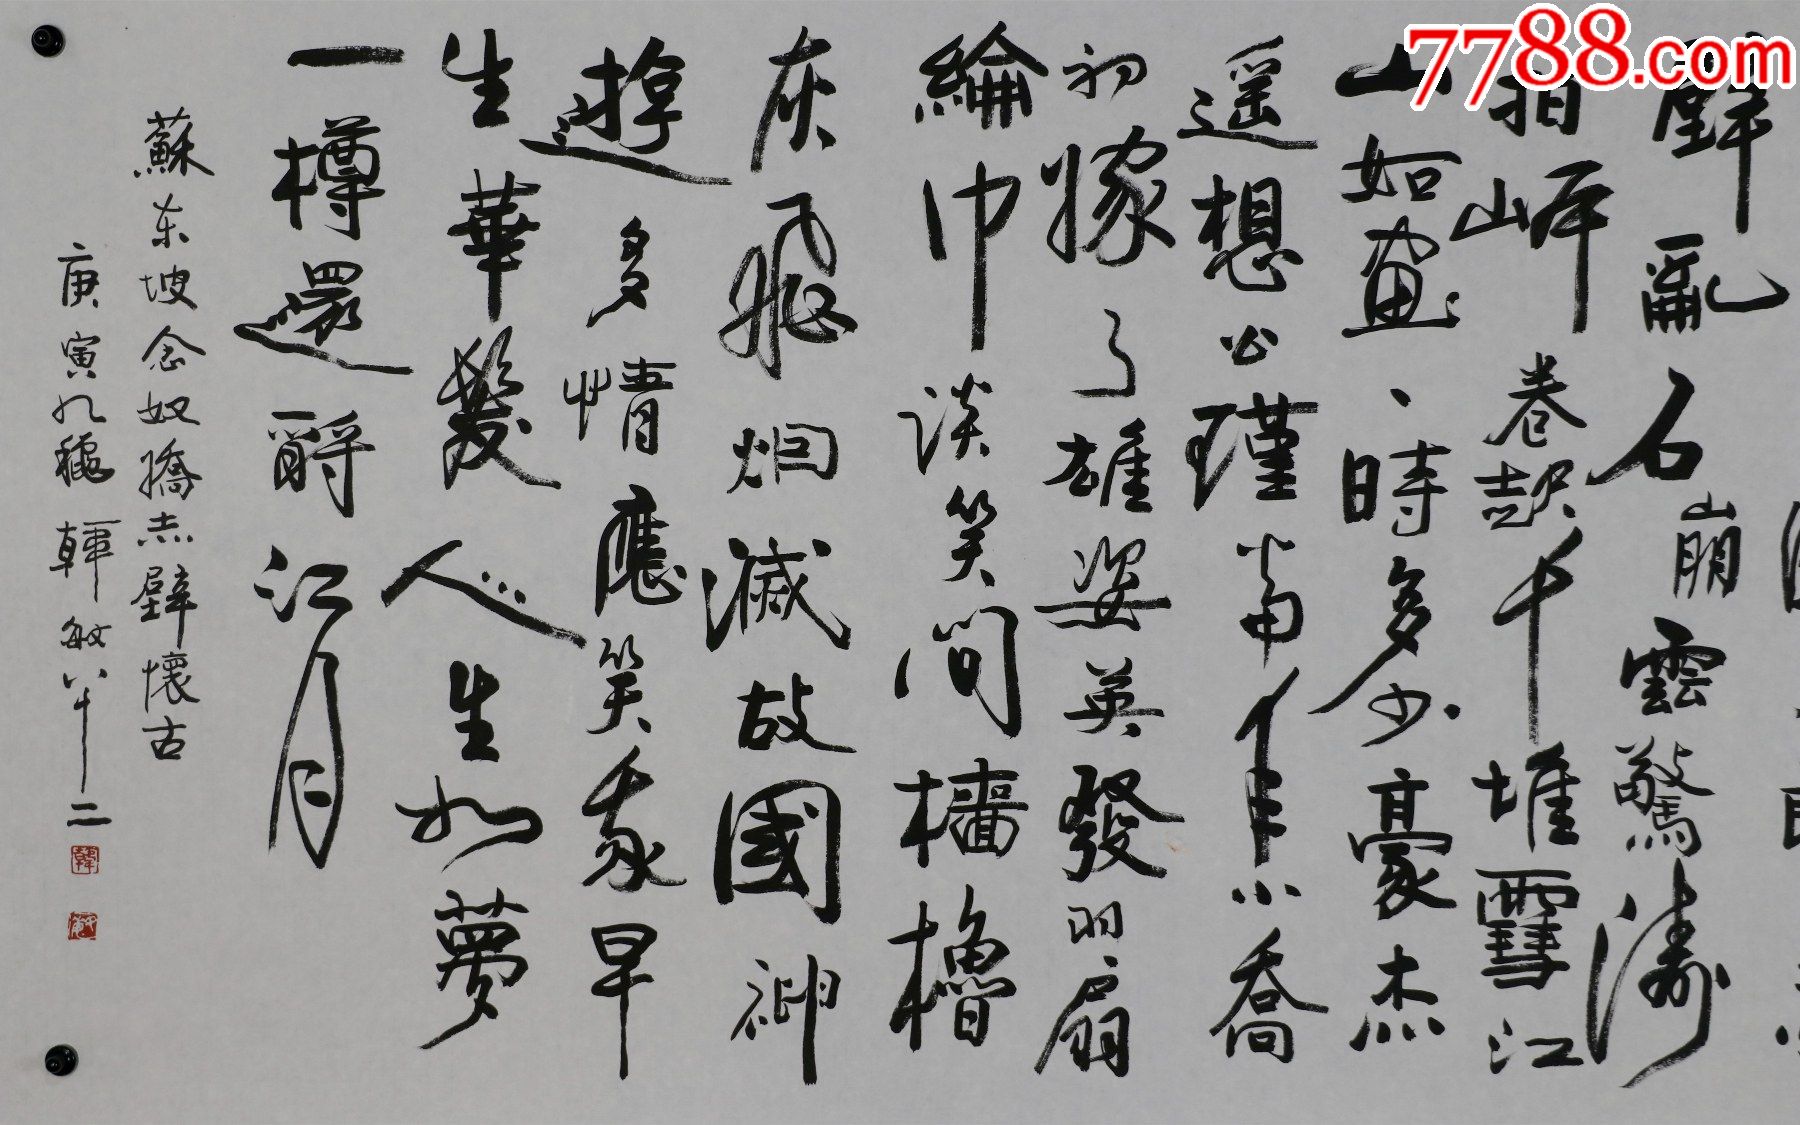 7788.com
壁亂石崩雲驚濤
拍岸卷起千堆雪江
山如畫、時多少豪杰
遥想公瑾當年小喬
初嫁了雄姿英發羽扇
綸巾談笑間檣櫓
灰飛烟滅故國神
遊多情應笑我早
生華髮人生如夢
一樽還酹江月
蘇东坡念奴嬌赤壁懷古
庚寅九龝韓敏八十二